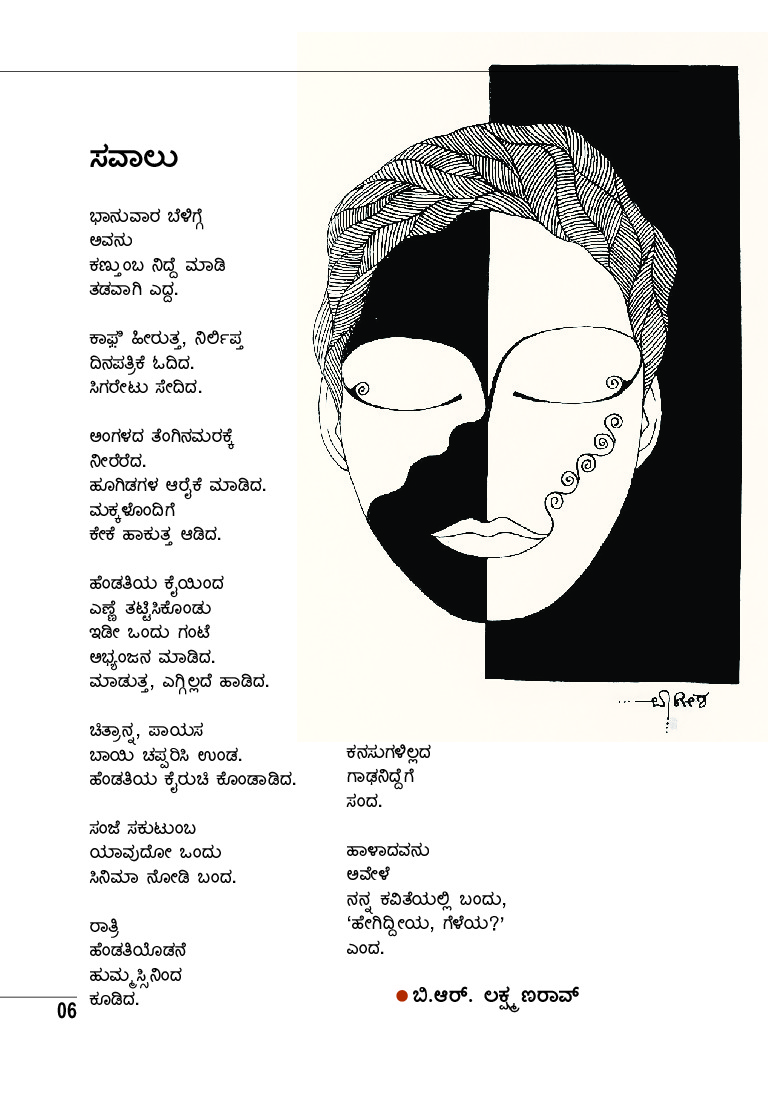 ಸವಾಲು
ಭಾನುವಾರ ಬೆಳಿಗ್ಗೆ
ಅವನು
ಕಣ್ತುಂಬ ನಿದ್ದೆ ಮಾಡಿ
ತಡವಾಗಿ ಎದ್ದ.
ಕಾಫ಼ಿ ಹೀರುತ್ತ, ನಿರ್ಲಿಪ್ತ
ದಿನಪತ್ರಿಕೆ ಓದಿದ.
ಸಿಗರೇಟು ಸೇದಿದ.
ಅಂಗಳದ ತೆಂಗಿನಮರಕ್ಕೆ
ನೀರೆರೆದ.
ಹೂಗಿಡಗಳ ಆರೈಕೆ ಮಾಡಿದ.
ಮಕ್ಕಳೊಂದಿಗೆ
ಕೇಕೆ ಹಾಕುತ್ತ ಆಡಿದ.
ಹೆಂಡತಿಯ ಕೈಯಿಂದ
ಎಣ್ಣೆ ತಟ್ಟಿಸಿಕೊಂಡು
ಇಡೀ ಒಂದು ಗಂಟೆ
ಅಭ್ಯಂಜನ ಮಾಡಿದ.
ಮಾಡುತ್ತ, ಎಗ್ಗಿಲ್ಲದೆ ಹಾಡಿದ.
ಚಿತ್ರಾನ್ನ, ಪಾಯಸ
ಬಾಯಿ ಚಪ್ಪರಿಸಿ ಉಂಡ.
ಹೆಂಡತಿಯ ಕೈರುಚಿ ಕೊಂಡಾಡಿದ.
ಸಂಜೆ ಸಕುಟುಂಬ
ಯಾವುದೋ ಒಂದು
ಸಿನಿಮಾ ನೋಡಿ ಬಂದ.
ರಾತ್ರಿ
ಹೆಂಡತಿಯೊಡನೆ
ಹುಮ್ಮಸ್ಸಿನಿಂದ
ಕೂಡಿದ.
ಕನಸುಗಳಿಲ್ಲದ
ಗಾಢನಿದ್ದೆಗೆ
ಸಂದ.
ಹಾಳಾದವನು
ಅವೇಳೆ
ನನ್ನ ಕವಿತೆಯಲ್ಲಿ ಬಂದು,
‘ಹೇಗಿದ್ದೀಯ, ಗೆಳೆಯ?’
ಎಂದ.
ಬಿ.ಆರ್. ಲಕ್ಷ್ಮಣರಾವ್
06